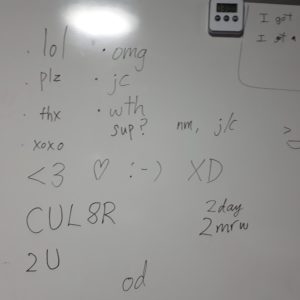 · lol · omg
· plz · jc
· thx · wth
xoxo sup? nm, j/c
<3 ♡ :-) XD
CUL8R 2day
2U 2mrw
od
I got
I got a